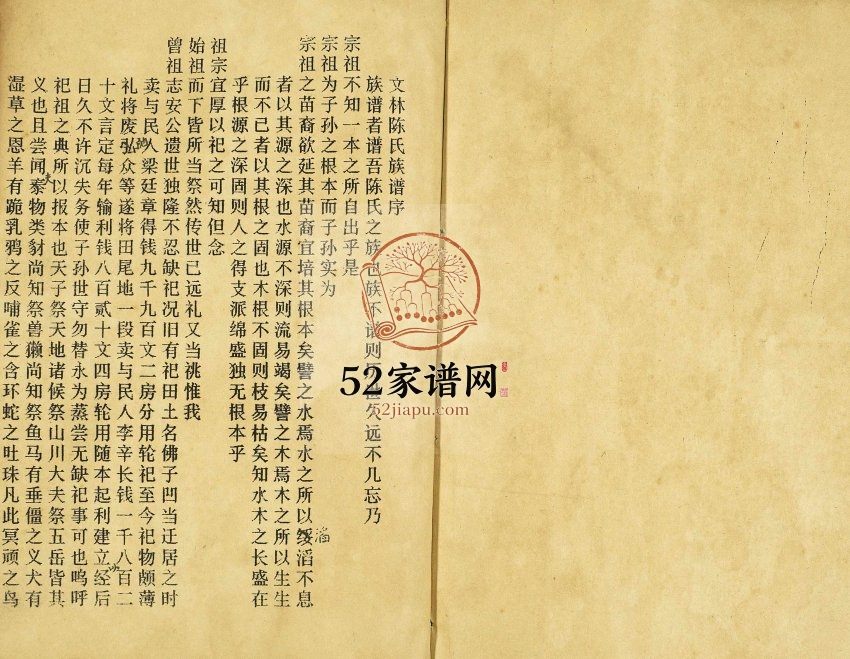 文林陈氏族谱序
族谱者谱吾陈氏之族也族不谱则久远不几忘乃
宗祖不知一本之所自出乎是
宗祖为子孙之根本而子孙实为
宗祖之苗裔欲延其苗裔宜培其根本矣譬之水焉水之所以绥滔不息
滔
者以其源之深也水源不深则流易竭矣譬之木焉木之所以生生
而不已者以其根之固也木根不固则枝易枯矣知水木之长盛在
乎根源之深固则人之得支派绵盛独无根本乎
祖宗宜厚以祀之可知但念
始祖而下皆所当祭然传世已远礼又当祧惟我
曾祖志安公遗世独隆不忍缺祀况旧有祀田土名佛子凹当迁居之时
卖与民人梁廷章得钱九千九百文二房分用轮祀至今祀物颇薄
礼将废弘众等遂将田尾地一段卖与民人李辛长钱一千八百二
十文言定每年输利钱八百贰十文四房轮用随本起利建立经后
日久不许沉失务使子孙世守勿替永为蒸尝无缺祀事可也呜呼
祀祖之典所以报本也天子祭天地诸候祭山川大夫祭五岳皆其
义也且尝闻物类豺尚知祭兽獭尚知祭鱼马有垂僵之义犬有
湿草之恩羊有跪乳鸦之反哺雀之含环蛇之吐珠凡此冥顽之鸟
52家谱网
52jiapu.com